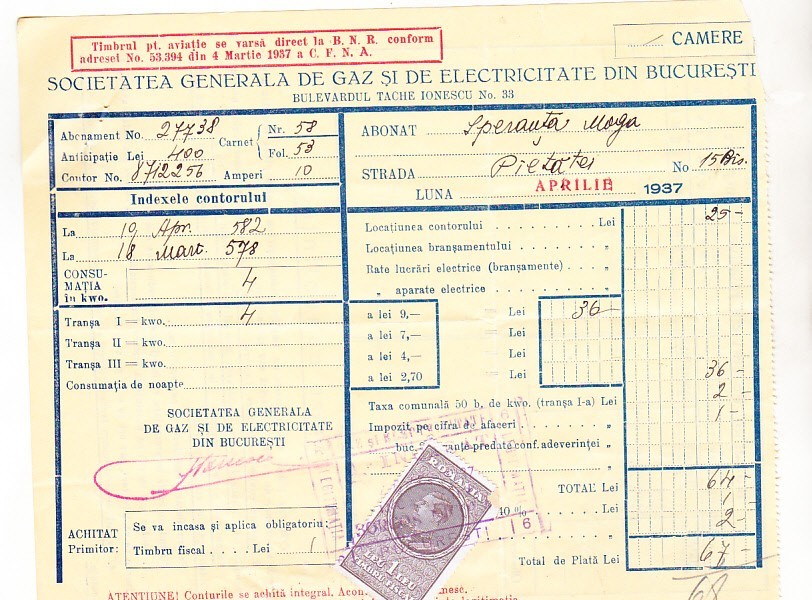 Timbrul pt. aviație se varsă direct la B. N. R. conform
adresei No. 53.394 din 4 Martie 1937 a C. F. N. A.
CAMERE
SOCIETATEA GENERALA DE GAZ ȘI DE ELECTRICITATE DIN BUCUREȘTI
BULEVARDUL TACHE IONESCU No. 33
Abonament No. 27738
Anticipație Lei 400
Contor No. 8712256 Amperi 10
Carnet { Nr. 58
Fol. 53
ABONAT Speranța Moga
STRADA Pietatei No 15 Bis.
LUNA APRILIE 1937
Indexele contorului
La 19 Apr. 582
La 18 Mart. 578
CONSU-
MAȚIA
în kwo. 4
Tranșa I = kwo. 4
Tranșa II = kwo.
Tranșa III = kwo.
Consumația de noapte
Locațiunea contorului Lei 25 -
Locațiunea branșamentului „
Rate lucrări electrice (branșamente) „
„ aparate electrice „
a lei 9,— = Lei 36
a lei 7,— = Lei
a lei 4,— = Lei
a lei 2,70 = Lei
36 -
Taxa comunală 50 b. de kwo. (tranșa I-a) Lei 2 -
Impozit pe cifra de afaceri „ 1 -
buc. predate conf. adeverinței „
TOTAL Lei 64 -
40 % „ 1
„ 2 -
Total de Plată Lei 67 -
68
SOCIETATEA GENERALA
DE GAZ ȘI DE ELECTRICITATE
DIN BUCUREȘTI
ACHITAT
Primitor:
Se va incasa și aplica obligatoriu:
Timbru fiscal Lei 1
ROMANIA
ATENȚIUNE! Conturile se achită integral.